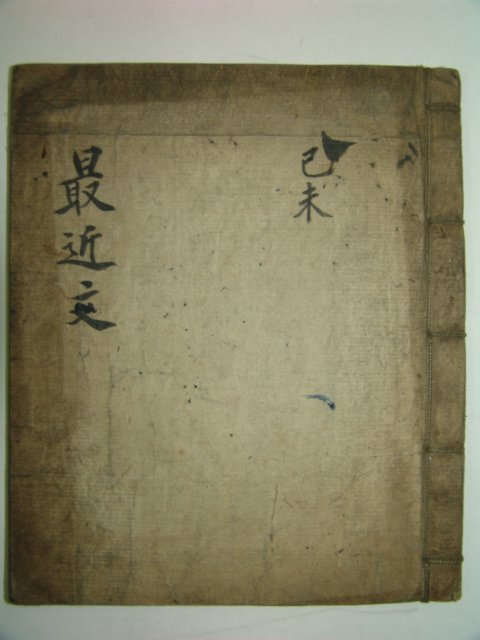 己未
最近文